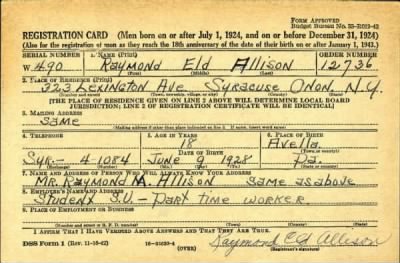 FORM APPROVED
Budget Bureau No. 33-R019-42
REGISTRATION CARD (Men born on or after July 1, 1924, and on or before December 31, 1924)
(Also for the registration of men as they reach the 18th anniversary of the date of their birth on or after January 1, 1943.)
SERIAL NUMBER 1. NAME (Print) ORDER NUMBER
W 490 Raymond Eld Allison 12736
(First) (Middle) (Last)
2. PLACE OF RESIDENCE (Print)
323 Lexington Ave Syracuse Onon. N.Y.
(Number and street) (Town, township, village, or city) (County) (State)
[THE PLACE OF RESIDENCE GIVEN ON LINE 2 ABOVE WILL DETERMINE LOCAL BOARD
JURISDICTION; LINE 2 OF REGISTRATION CERTIFICATE WILL BE IDENTICAL]
3. MAILING ADDRESS
Same
(Mailing address if other than place indicated on line 2. If same, insert word same)
4. TELEPHONE 5. AGE IN YEARS 6. PLACE OF BIRTH
18 Avella
DATE OF BIRTH (Town or county)
Syr.- 4-1084 June 9 1928 Pa.
(Exchange) (Number) (Mo.) (Day) (Yr.) (State or country)
7. NAME AND ADDRESS OF PERSON WHO WILL ALWAYS KNOW YOUR ADDRESS
Mr. Raymond M. Allison same as above
8. EMPLOYER'S NAME AND ADDRESS
Student S.U.- Part time worker.
9. PLACE OF EMPLOYMENT OR BUSINESS
(Number and street or R. F. D. number) (Town) (County) (State)
I AFFIRM THAT I HAVE VERIFIED ABOVE ANSWERS AND THAT THEY ARE TRUE.
DSS Form 1 (Rev. 11-16-42) 16-21630-4
(OVER) Raymond Eld Allison
(Registrant's signature)